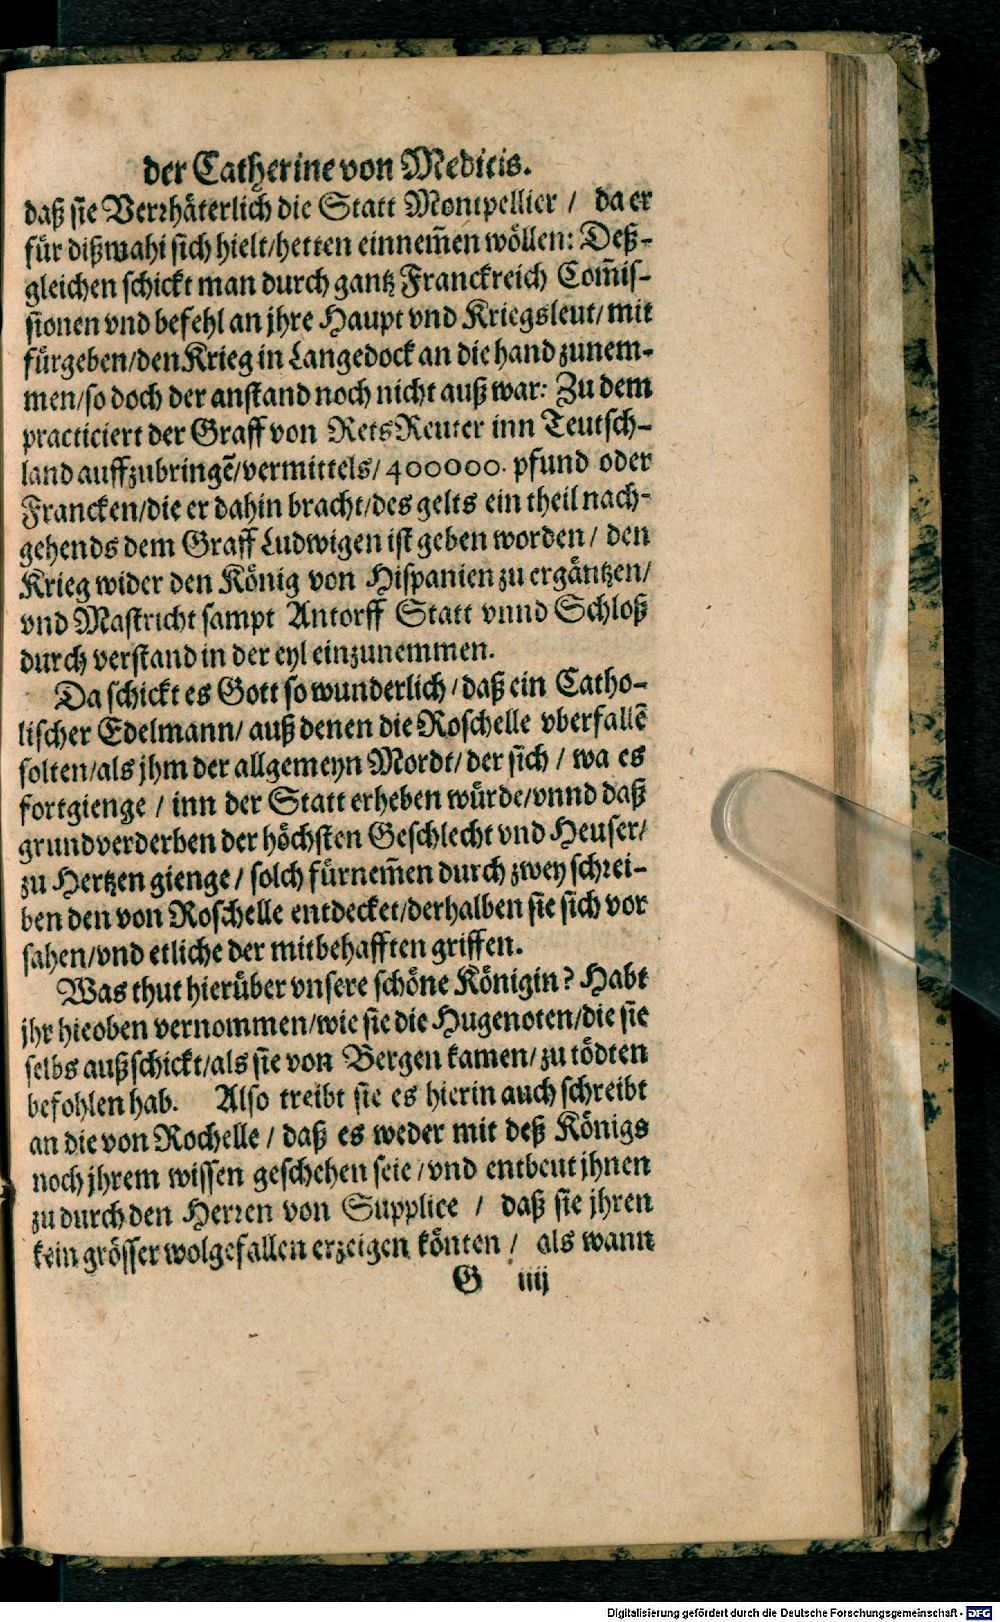 der Catherine von Medicis.
daß sie Verrhäterlich die Statt Montpellier / da er
für dißmahl sich hielt/hetten einnem̃en wöllen: Deß-
gleichen schickt man durch gantz Franckreich Com̃is-
sionen vnd befehl an jhre Haupt vnd Kriegsleut/mit
fürgeben/den Krieg in Langedock an die hand zunem-
men/so doch der anstand noch nicht auß war: Zu dem
practiciert der Graff von Rets Reuter inn Teutsch-
land auffzubringẽ/vermittels/400000. pfund oder
Francken/die er dahin bracht/des gelts ein theil nach-
gehends dem Graff Ludwigen ist geben worden / den
Krieg wider den König von Hispanien zu ergäntzen/
vnd Mastricht sampt Antorff Statt vnnd Schloß
durch verstand in der eyl einzunemmen.
Da schickt es Gott so wunderlich / daß ein Catho-
lischer Edelmann/ auß denen die Roschelle vberfallẽ
solten/als jhm der allgemeyn Mordt/ der sich / wa es
fortgienge / inn der Statt erheben würde/vnnd daß
grundverderben der höchsten Geschlecht vnd Heuser/
zu Hertzen gienge / solch fürnem̃en durch zwey schrei-
ben den von Roschelle entdecket/derhalben sie sich vor
sahen/vnd etliche der mitbehafften griffen.
Was thut hierüber vnsere schöne Königin? Habt
jhr hieoben vernommen/wie sie die Hugenoten/die sie
selbs außschickt/als sie von Bergen kamen/zu tödten
befohlen hab. Also treibt sie es hierin auch schreibt
an die von Rochelle / daß es weder mit deß Königs
noch jhrem wissen geschehen seie / vnd entbeut jhnen
zu durch den Herren von Supplice / daß sie jhren
kein grösser wolgefallen erzeigen könten / als wann
G iiij
Digitalisierung gefördert durch die Deutsche Forschungsgemeinschaft - DFG